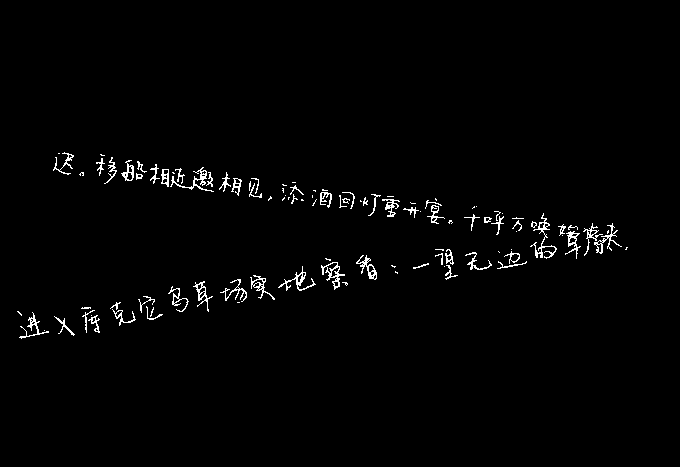 迟。移船相近邀相见,添酒回灯重开宴。千呼万唤始出来,
进入库克它乌草场实地察看:一望无边的草